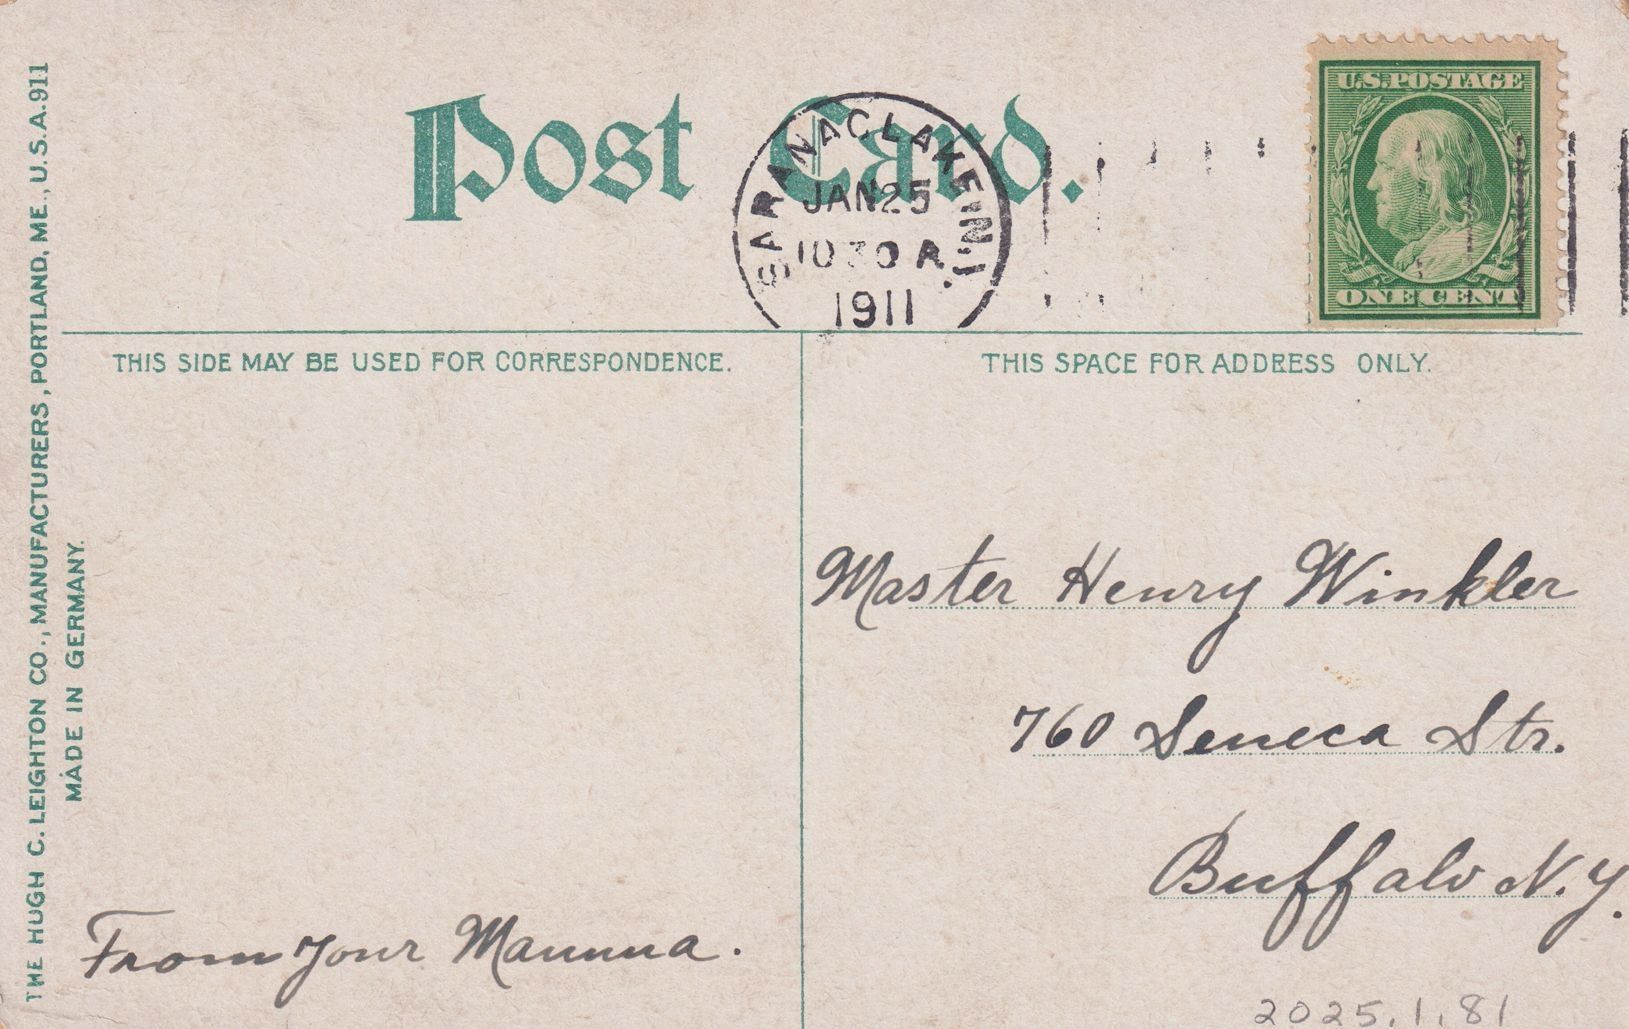 Post Card.
SARANAC LAKE, N.Y.
JAN 25
10 30 A.
1911
U.S. POSTAGE
ONE CENT
THIS SIDE MAY BE USED FOR CORRESPONDENCE.
THIS SPACE FOR ADDRESS ONLY.
THE HUGH C. LEIGHTON CO., MANUFACTURERS, PORTLAND, ME., U.S.A. 911
MADE IN GERMANY.
From your Mamma.
Master Henry Winkler
760 Seneca Str.
Buffalo N.Y.
2025.1.81